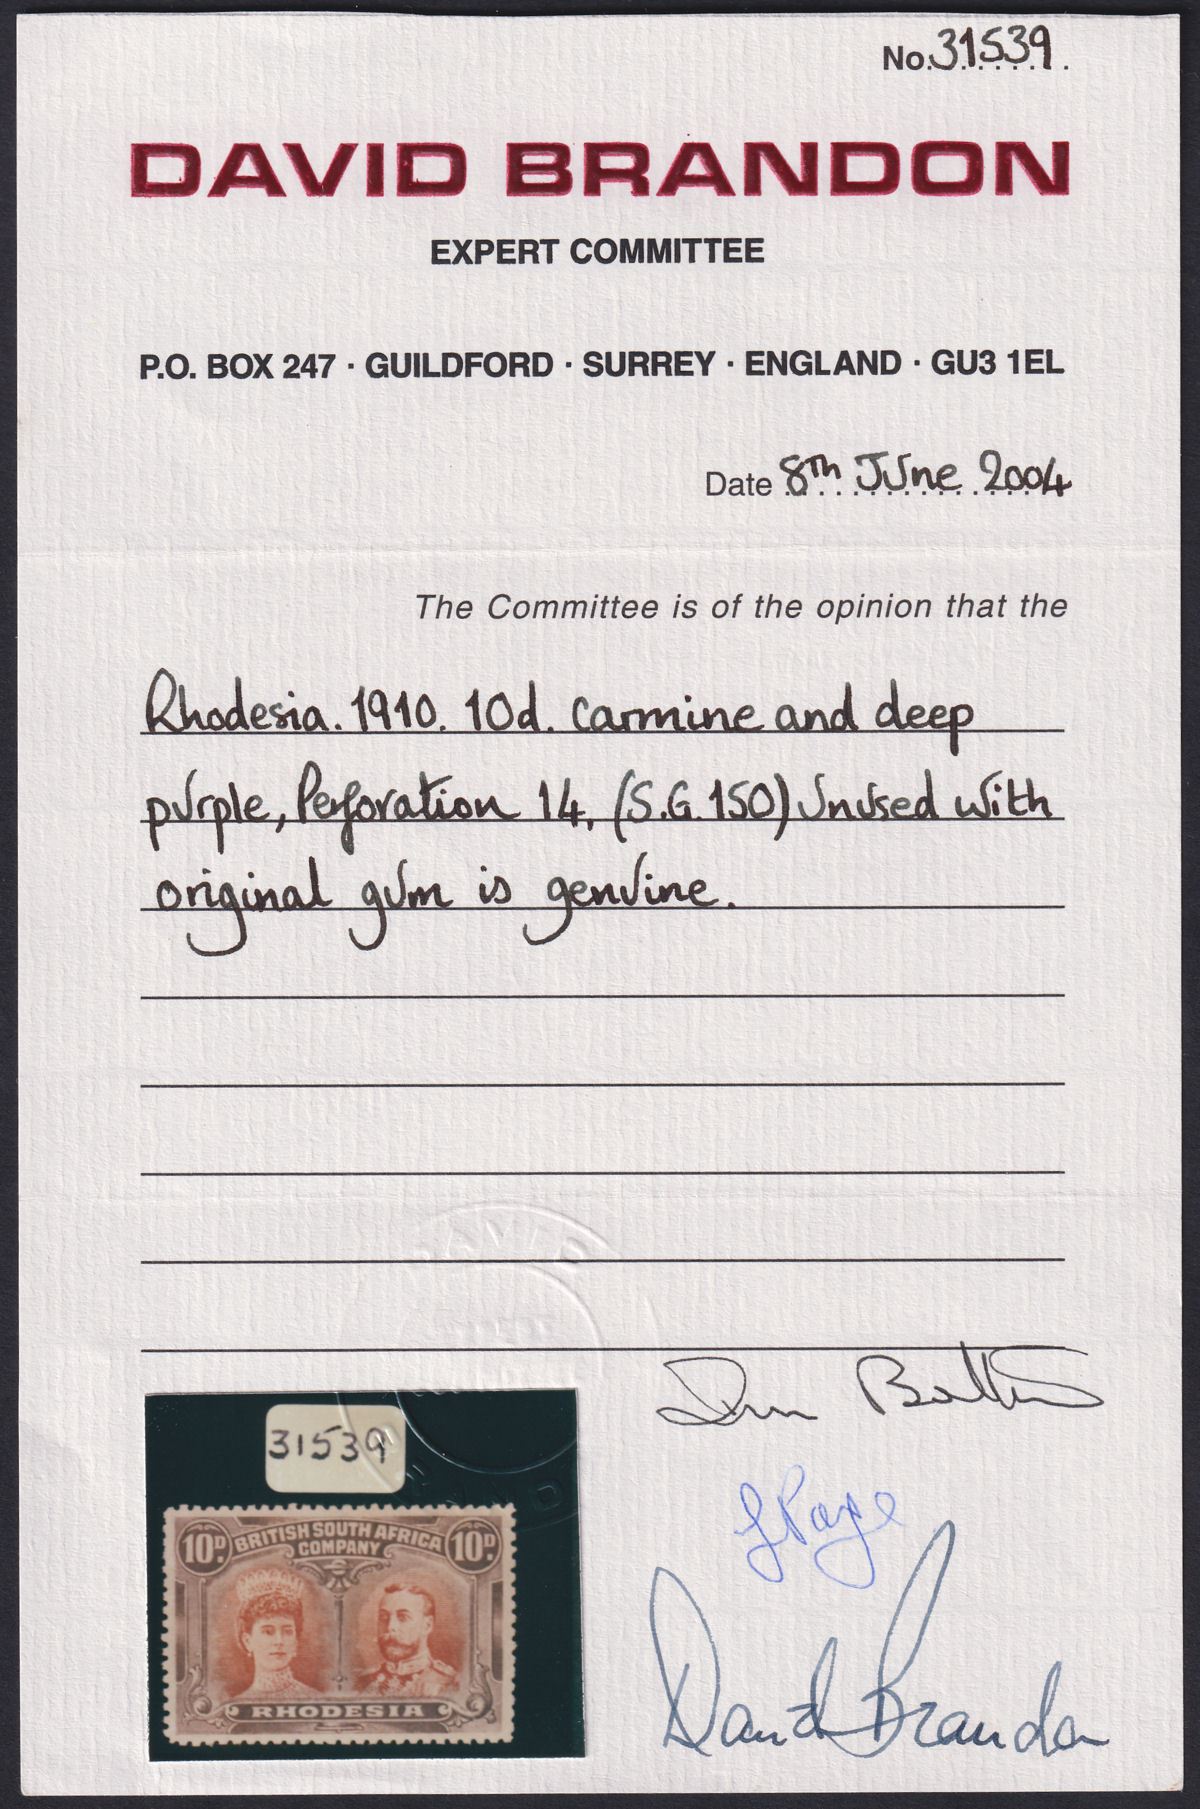 No. 31539
DAVID BRANDON
EXPERT COMMITTEE
P.O. BOX 247 · GUILDFORD · SURREY · ENGLAND · GU3 1EL
Date 8Th June 2004
The Committee is of the opinion that the
Rhodesia. 1910. 10d. carmine and deep
purple, Perforation 14, (S.G. 150) Unused with
original gum is genuine.
31539
10D. BRITISH SOUTH AFRICA 10D.
COMPANY
RHODESIA
David Brandon